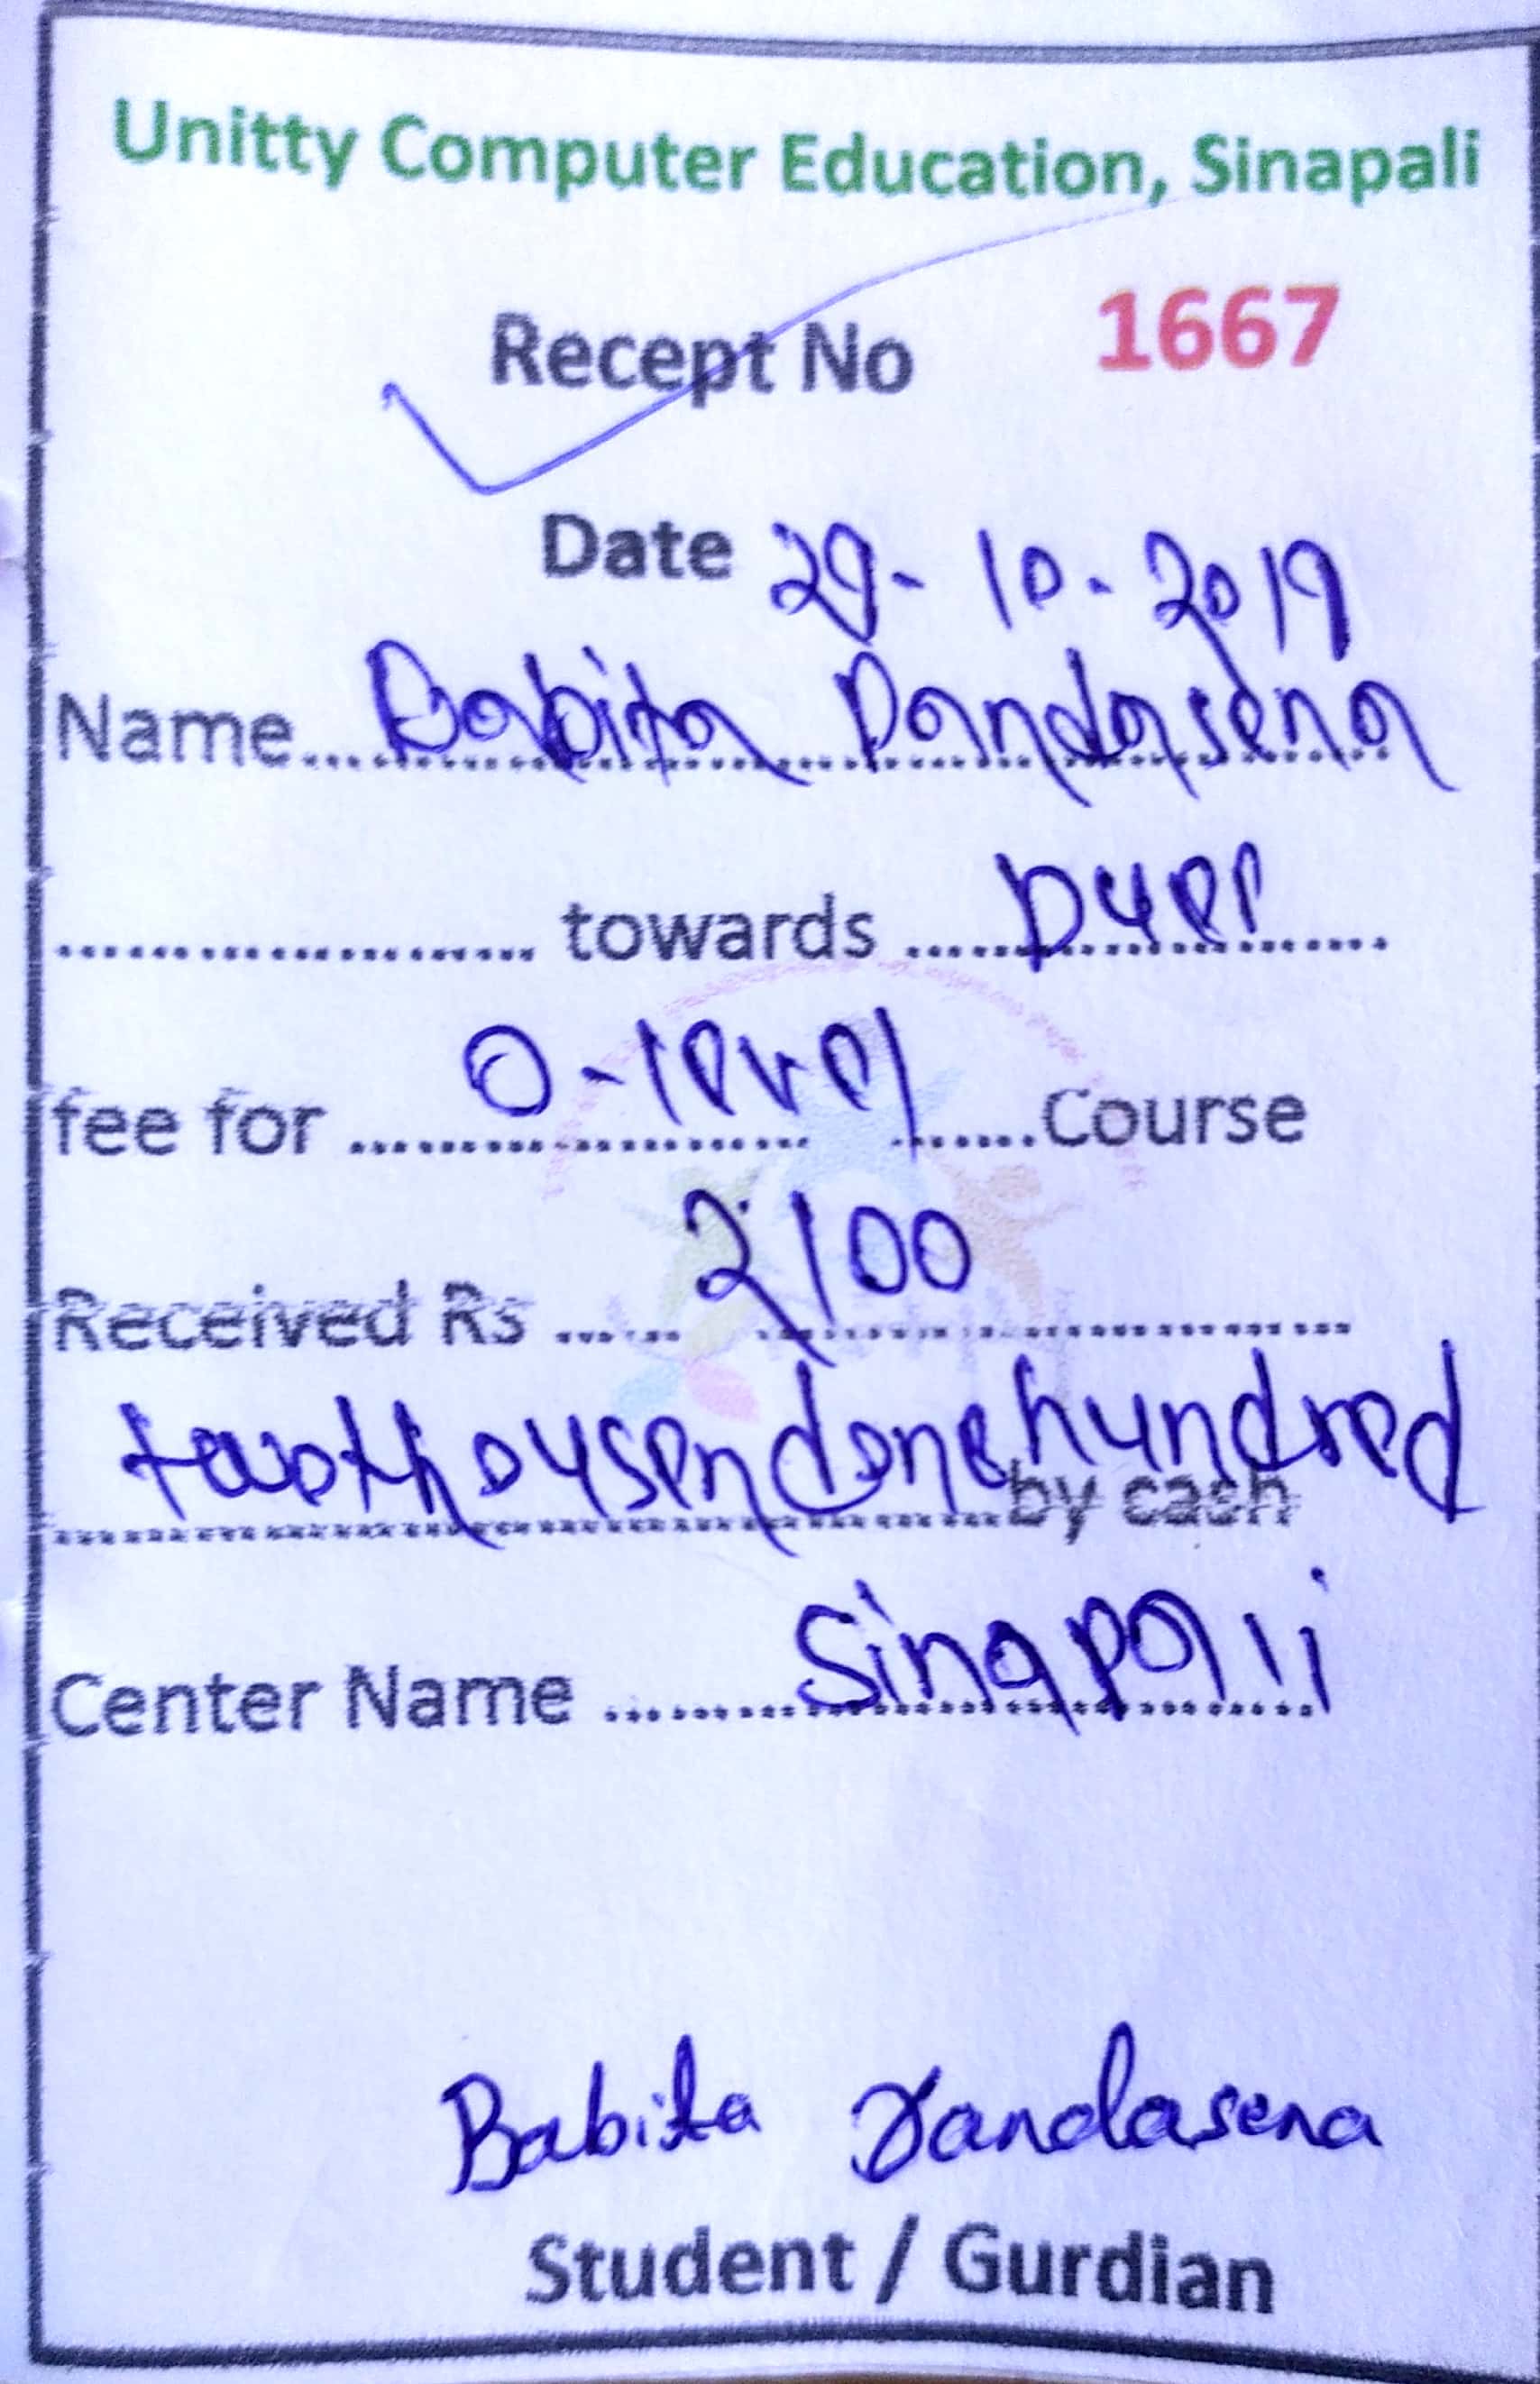 Unitty Computer Education, Sinapali
Recept No 1667
Date 29-10-2019
Name...Babita Dandasena
............ towards ....Duee......
fee for ....O-level....Course
Received Rs ...2100............
twothousendonehundred by cash
Center Name .......Sinapalii
Babita Dandasena
Student / Gurdian